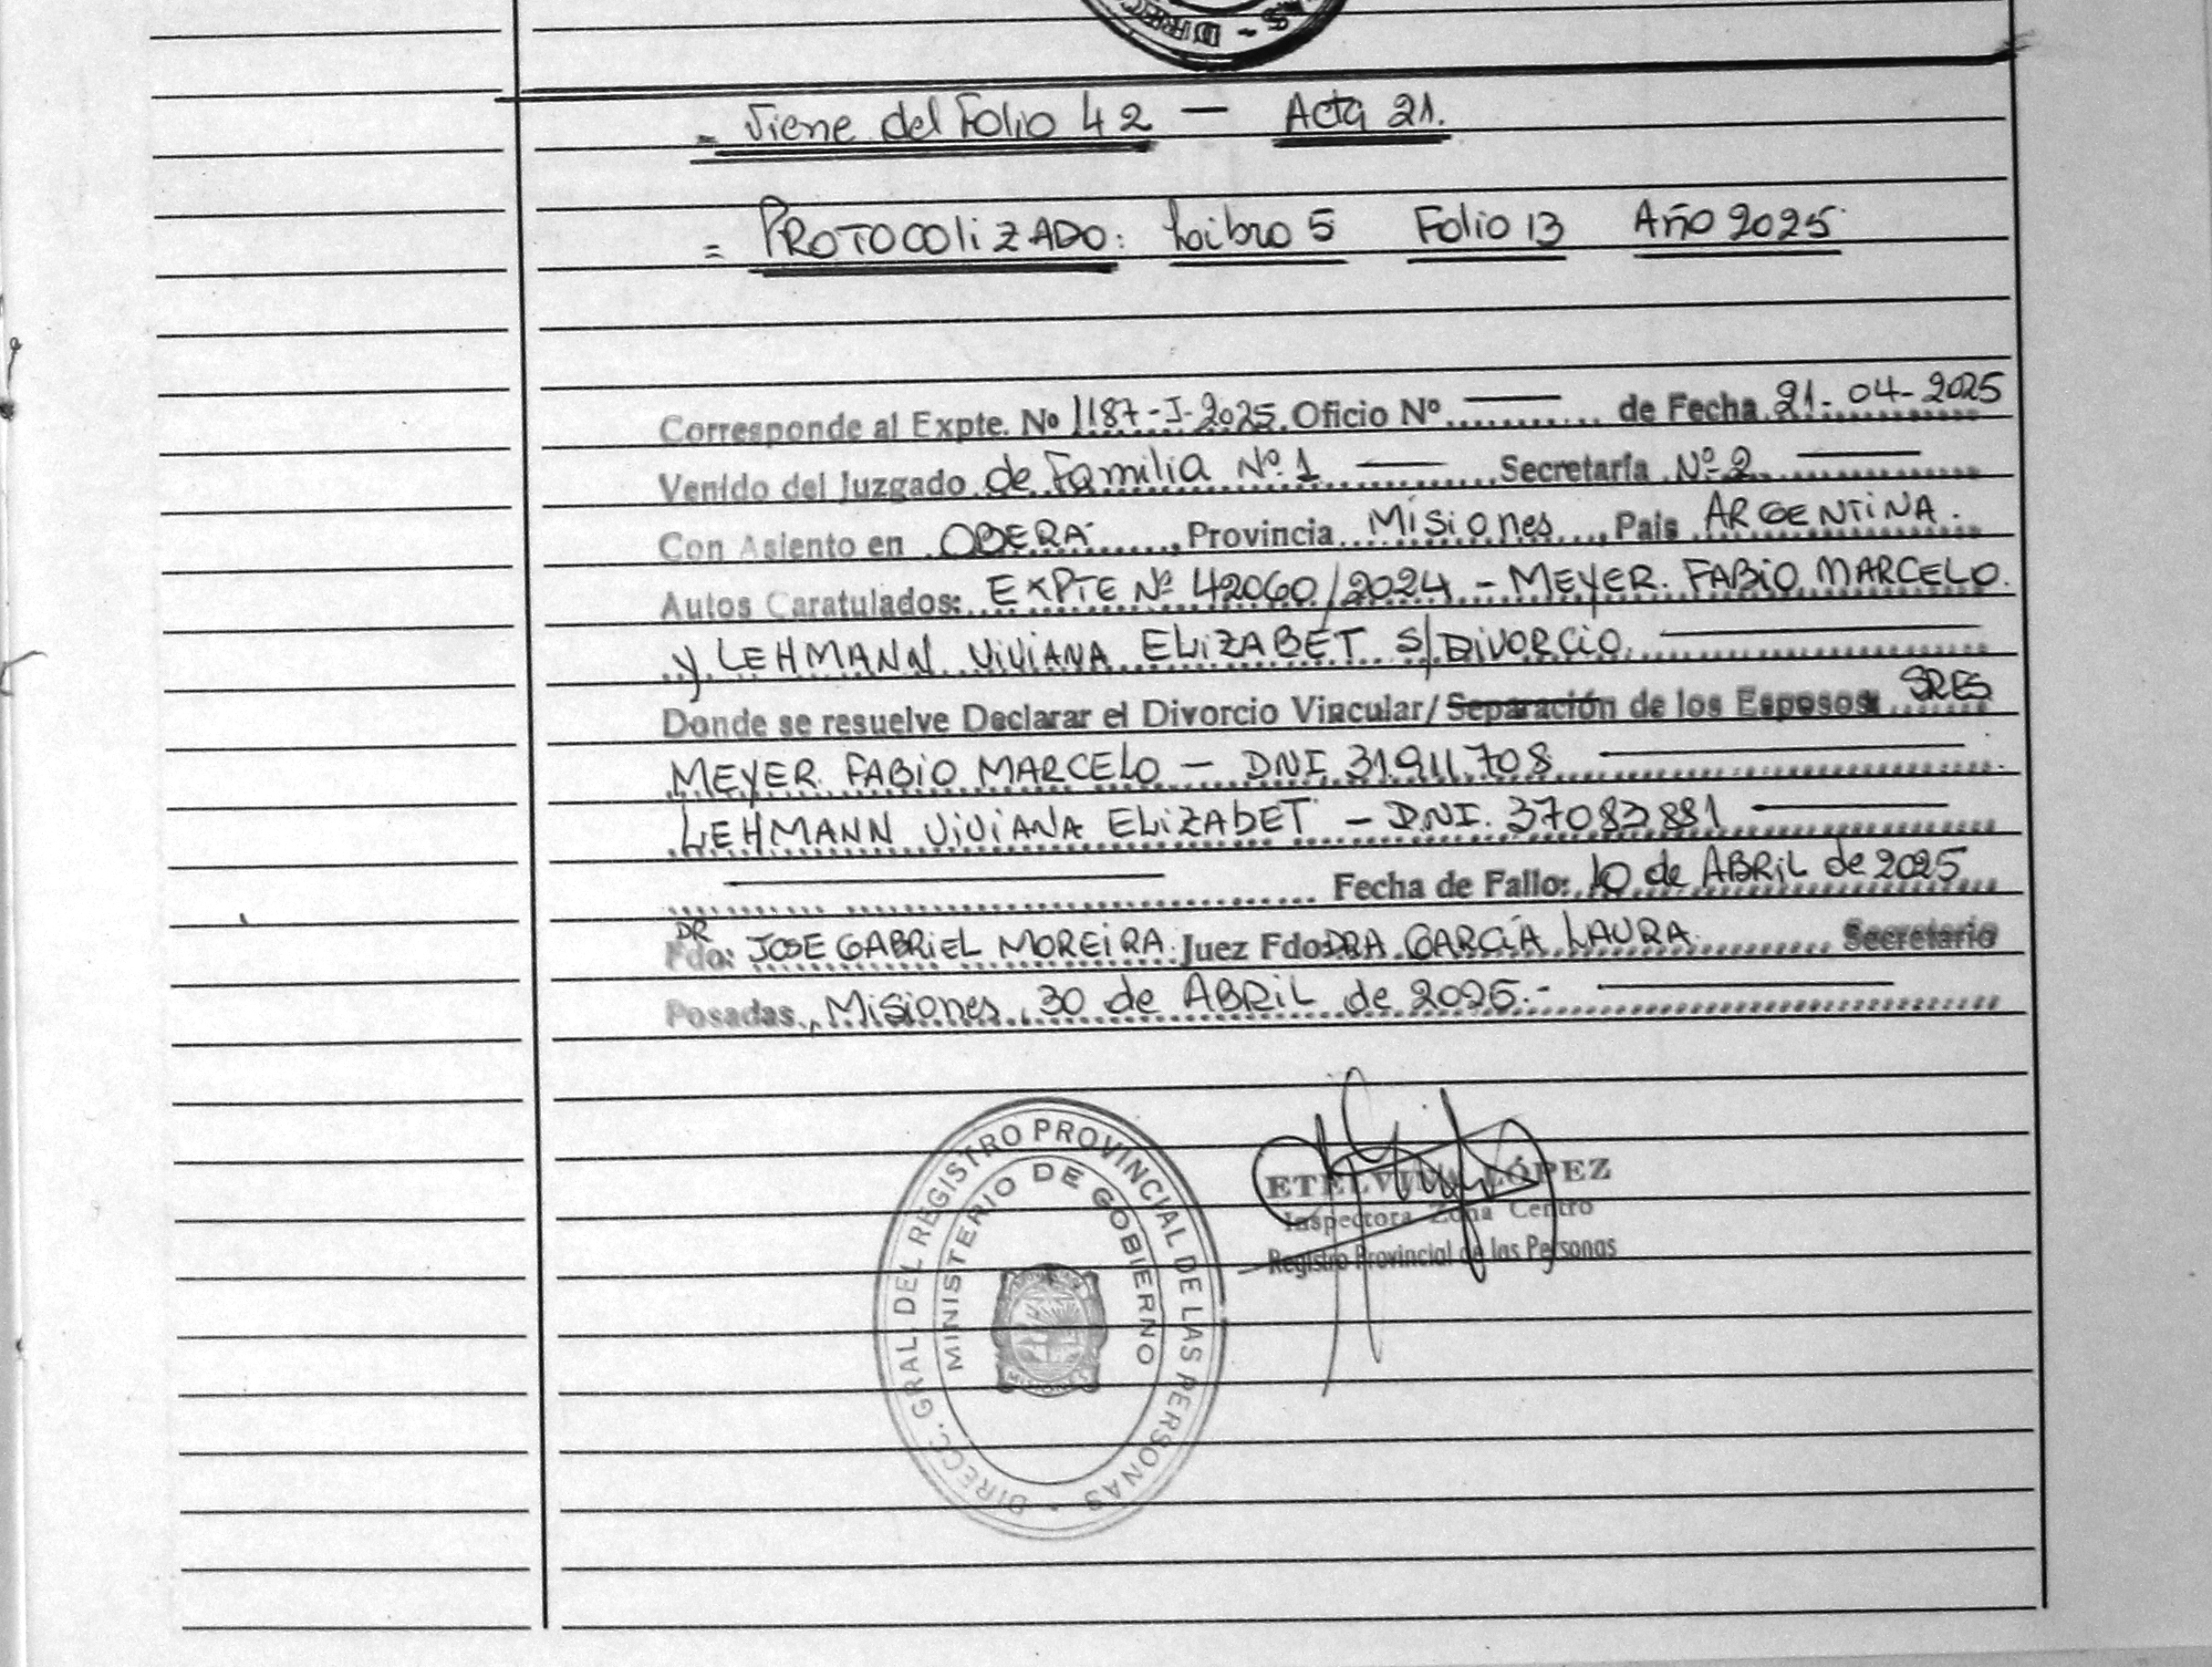 AS - DIREC
= Viene del Folio 42 — Acta 21.
= PROTOCOLIZADO: Libro 5 Folio 13 Año 2025
Corresponde al Expte. Nº 1187-I-2025. Oficio Nº —— de Fecha 21-04-2025
Venido del Juzgado de Familia Nº 1 —— Secretaría Nº 2 ——
Con Asiento en OBERÁ, Provincia Misiones, Pais ARGENTINA.
Autos Caratulados: EXPTE Nº 42060/2024 - MEYER. FABIO MARCELO.
y LEHMANN VIVIANA ELIZABET S/DIVORCIO. ——
Donde se resuelve Declarar el Divorcio Vincular/Separación de los Esposos: SRES
MEYER FABIO MARCELO — DNI 31.911.708 ——
LEHMANN VIVIANA ELIZABET — DNI. 37083881 ——
—— Fecha de Fallo: 10 de ABRIL de 2025
DR
Fdo: JOSE GABRIEL MOREIRA. Juez Fdo: DRA GARCÍA LAURA Secretario
Posadas, Misiones, 30 de ABRIL de 2025.- ——
DIRECC. GRAL DEL REGISTRO PROVINCIAL DE LAS PERSONAS
MINISTERIO DE GOBIERNO
MISIONES
ETELVINA LÓPEZ
Inspectora Zona Centro
Registro Provincial de las Personas